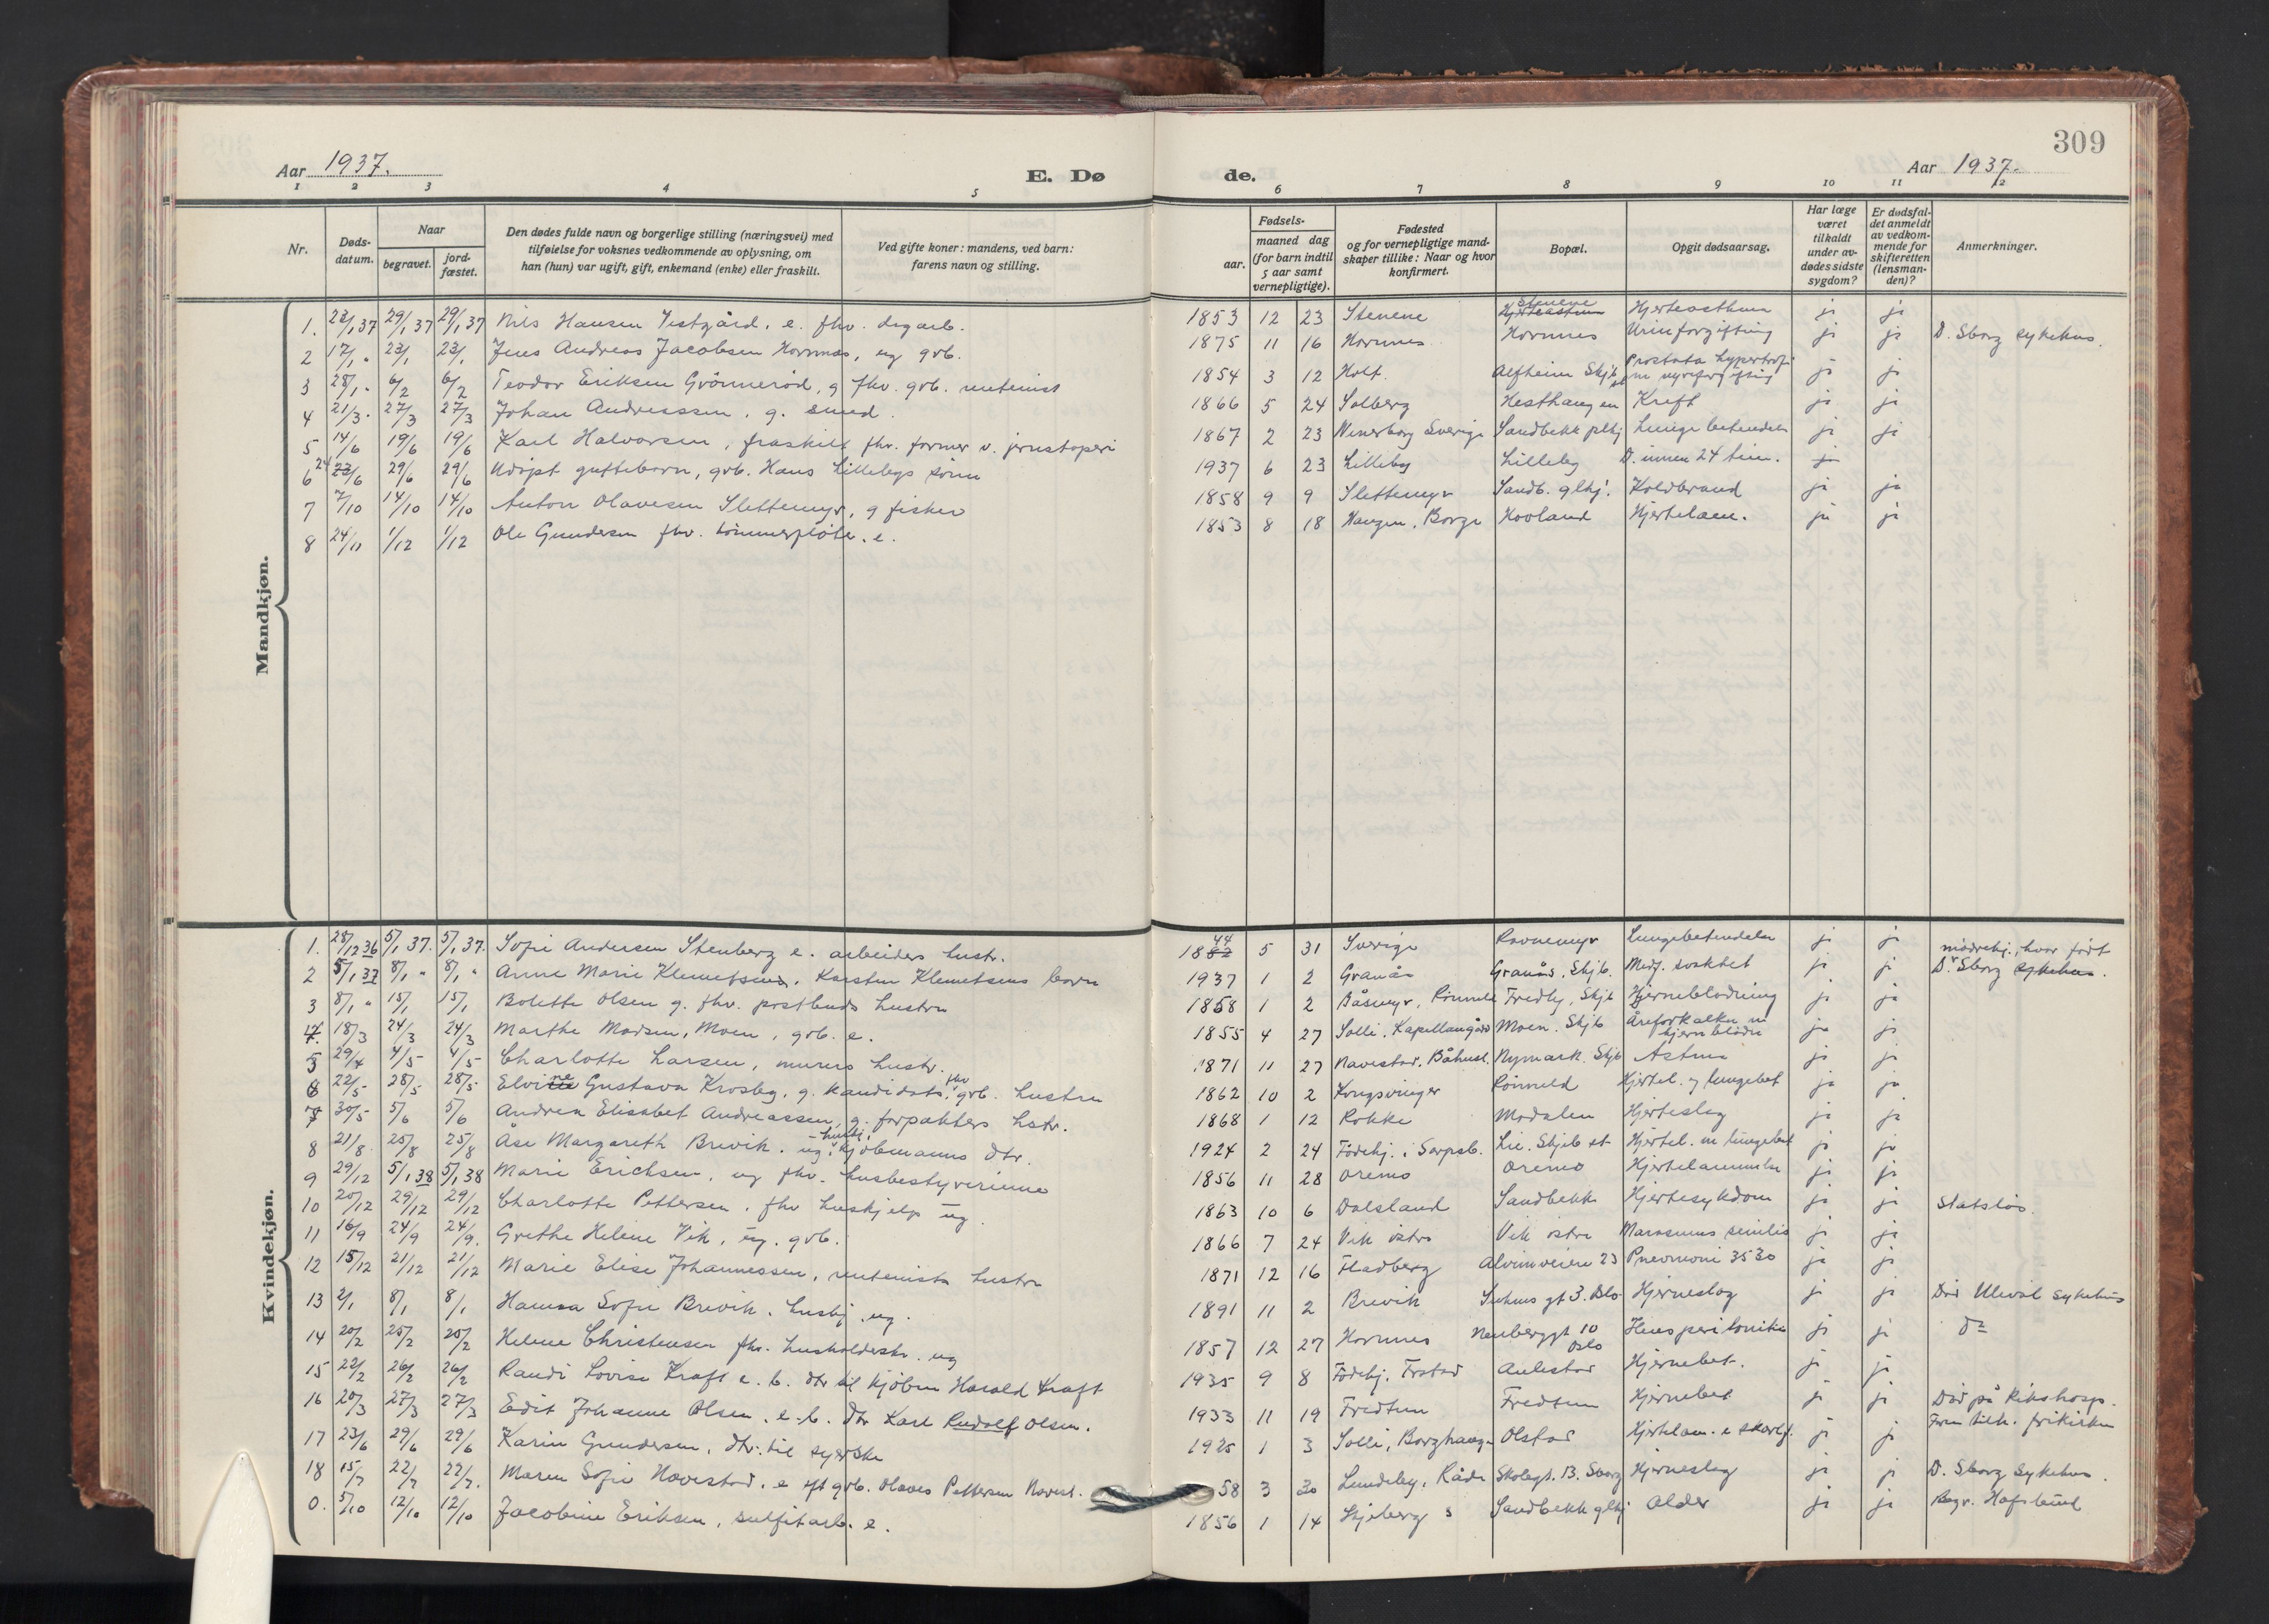 309
Aar 1937.
E. Dø
de.
Aar 1937.
1 2 3 4 5
6 7 8 9 10 11 12
Nr.
Døds-
datum.
Naar
begravet.
jord-
fæstet.
Den dødes fulde navn og borgerlige stilling (næringsvei) med
tilføielse for voksnes vedkommende av oplysning, om
han (hun) var ugift, gift, enkemand (enke) eller fraskilt.
Ved gifte koner: mandens, ved barn:
farens navn og stilling.
Fødsels-
aar.
maaned dag
(for barn indtil
5 aar samt
vernepligtige).
Fødested
og for vernepligtige mand-
skaper tillike: Naar og hvor
konfirmert.
Bopæl.
Opgit dødsaarsag.
Har læge
været
tilkaldt
under av-
dødes sidste
sygdom?
Er dødsfal-
det anmeldt
av vedkom-
mende for
skifteretten
(lensman-
den)?
Anmerkninger.
Mandkjøn.
1. 23/1 37 29/1 37 29/1 37 Nils Hansen Vestgård, e. fhv. dagarb. 1853 12 23 Stenene Stenene Hjerteasthma ja ja
2 17/1 " 23/1 23/1 Jens Andreas Jacobsen Hornnæs, ug gvb. 1875 11 16 Hornnes Hornnes Urinforgiftning ja ja D. Sborg sykehus.
3 28/1 " 6/2 6/2 Teodor Eriksen Grönnerød, g fhv. gvb. rentenist 1854 3 12 Holt Alfheim Skjb. Prostata hypertrofi m nyreforgiftning ja ja
4 21/3 27/3 27/3 Johan Andreassen, g. smed. 1866 5 24 Solberg Hesthaugen Kreft ja ja
5 14/6 19/6 19/6 Karl Halvorsen, fraskilt fhv. former v. jernstøperi 1867 2 23 Wenersborg Sverige Sandbekk plhj Lungebetendels ja ja
6 24 23/6 29/6 29/6 Udöpt guttebarn, gvb. Hans Lillebys sönn 1937 6 23 Lilleby Lilleby D. innen 24 tim. ja
7 7/10 14/10 14/10 Anton Olavesen Slettemyr, g fisker 1858 9 9 Slettemyr Sandb. glhj. Koldbrand ja ja
8 24/11 1/12 1/12 Ole Gundersen fhv. tömmerfløter. e. 1853 8 18 Haugen, Borge Hovland Hjertelam. ja ja
Kvindekjøn.
1. 28/12 36 5/1 37. 5/1 37. Sofie Andersen Stenberg e. arbeiders hustr. 1844 5 31 Sverige Ravnemyr Lungebetendelse ja ja
2 5/1 37 8/1 " 8/1 " Anne Marie Klemetsen, Karsten Klemetsens barn 1937 1 2 Granås Granås, Skjb. Medf. svakhet ja ja mødrehj., hvor født D. Sborg sykehus.
3 8/1 " 15/1 15/1 Bolette Olsen g. fhv. postbuds hustru 1858 1 2 Båsmyr, Rönneld Fredly, Skjb Hjerneblødning ja ja
4. 18/3 24/3 24/3 Marthe Madsen, Moen, gvb. e. 1855 4 27 Solli, Kapellangård Moen. Skjb Åreforkalkn m hjerneblödn ja ja
5 29/4 4/5 4/5 Charlotte Larsen, murers hustr. 1871 11 27 Navestad. Båhusl. Nymark. Skjb Astma ja ja
6 22/5 28/5 28/5 Elvine Gustava Krosby, g. kandidats, fhv gvb. hustru 1862 10 2 Kongsvinger Rönneld Hjertel. og lungebet ja ja
7 30/5 5/6 5/6 Andrea Elisabet Andreassen, g. forpakters hstr. 1868 1 12 Rokke Modalen Hjerteslag ja ja
8 21/8 25/8 25/8 Åse Margareth Brevik. ug. kjöbmanns dtr. 1924 2 24 Födehj. i Sarpsb. Lie. Skjeb st Hjertel. m lungebet ja ja
9 29/12 5/1 38 5/1 38 Marie Erichsen, ug fhv. husbestyrerinne 1856 11 28 Oremo Oremo Hjertelammelse ja ja
10 20/12 29/12 29/12 Charlotte Pettersen, fhv huskjelp ug. 1863 10 6 Dalsland Sandbekk Hjertesykdom ja ja Statslös.
11 16/9 24/9 24/9. Grethe Helene Vik, ug. gvb. 1866 7 24 Vik östre Vik östre Marasmus senilis ja ja
12 15/12 21/12 21/12 Marie Elise Johannessen, rentenists hustru 1871 12 16 Hadberg Alvimveien 23 Pneumoni 3530 ja ja
13 2/1 8/1 8/1 Hanna Sofie Brevik. hushj. ug. 1891 11 2 Brevik Suhms gt 3. Oslo Hjerneslag ja ja Död Ulevål sykehus
14 20/2 25/2 25/2 Helene Christensen fhv. husholderske. ug 1857 12 27 Hornnes Neuberggt 10 Oslo peritonitis ja ja do
15 22/2 26/2 26/2 Randi Lovise Kraft e. b. dtr til kjöbm Harald Kraft 1935 9 8 Födehj. Frstad Aulestad Hjernebet. ja ja
16 20/3 27/3 27/3 Edit Johanne Olsen. e. b. dtr Karl Rudolf Olsen. 1933 11 19 Fredtun Fredtun Hjernebet ja ja Död på Rikshosp.
17 23/6 29/6 29/6 Karin Gundersen, dtr. til syerske 1925 1 3 Solli, Borghaugen Olstad Hjertelam. e skarlf. ja ja tilh. frikirken
18 15/7 22/7 22/7. Maren Sofie Navestad. e eft gvb. Olaves Pettersen Navest. 58 3 30 Lundeby, Råde Skolegt. 13. Sborg Hjerneslag ja ja D. Sborg sykehus.
0. 5/10 12/10 12/10 Jacobine Eriksen, sulfitarb. e. 1856 1 14 Skjeberg s Sandbekk glhj Alder ja ja Begr. Hafslund